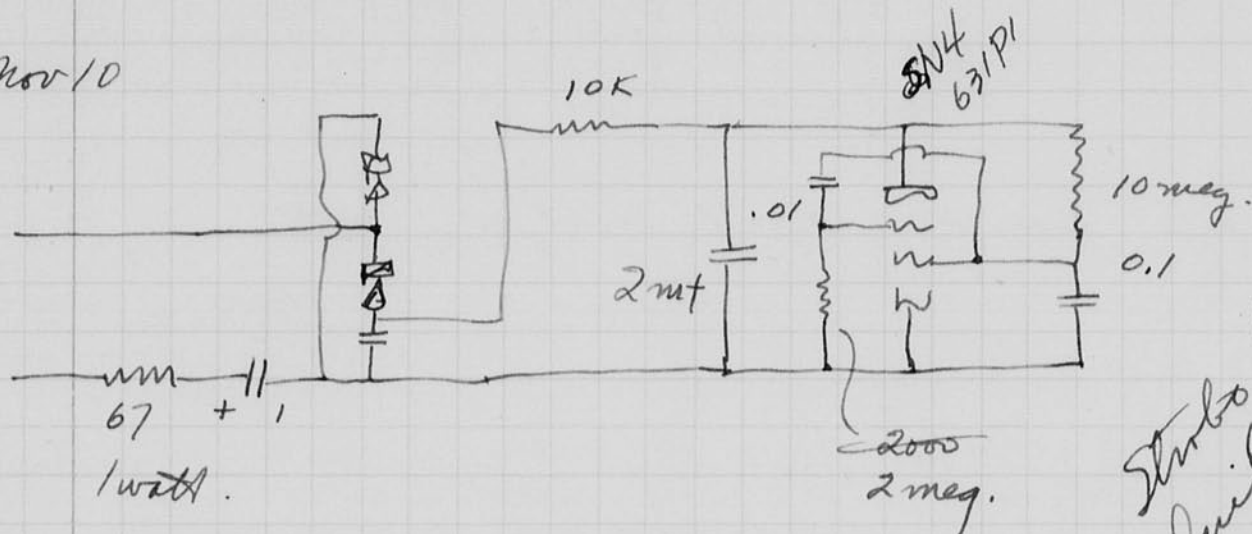 Nov 10
10K
SN4
631P1
10 meg.
.01
0.1
2 mf
67 + 1
1 watt.
2000
2 meg.
Strobo